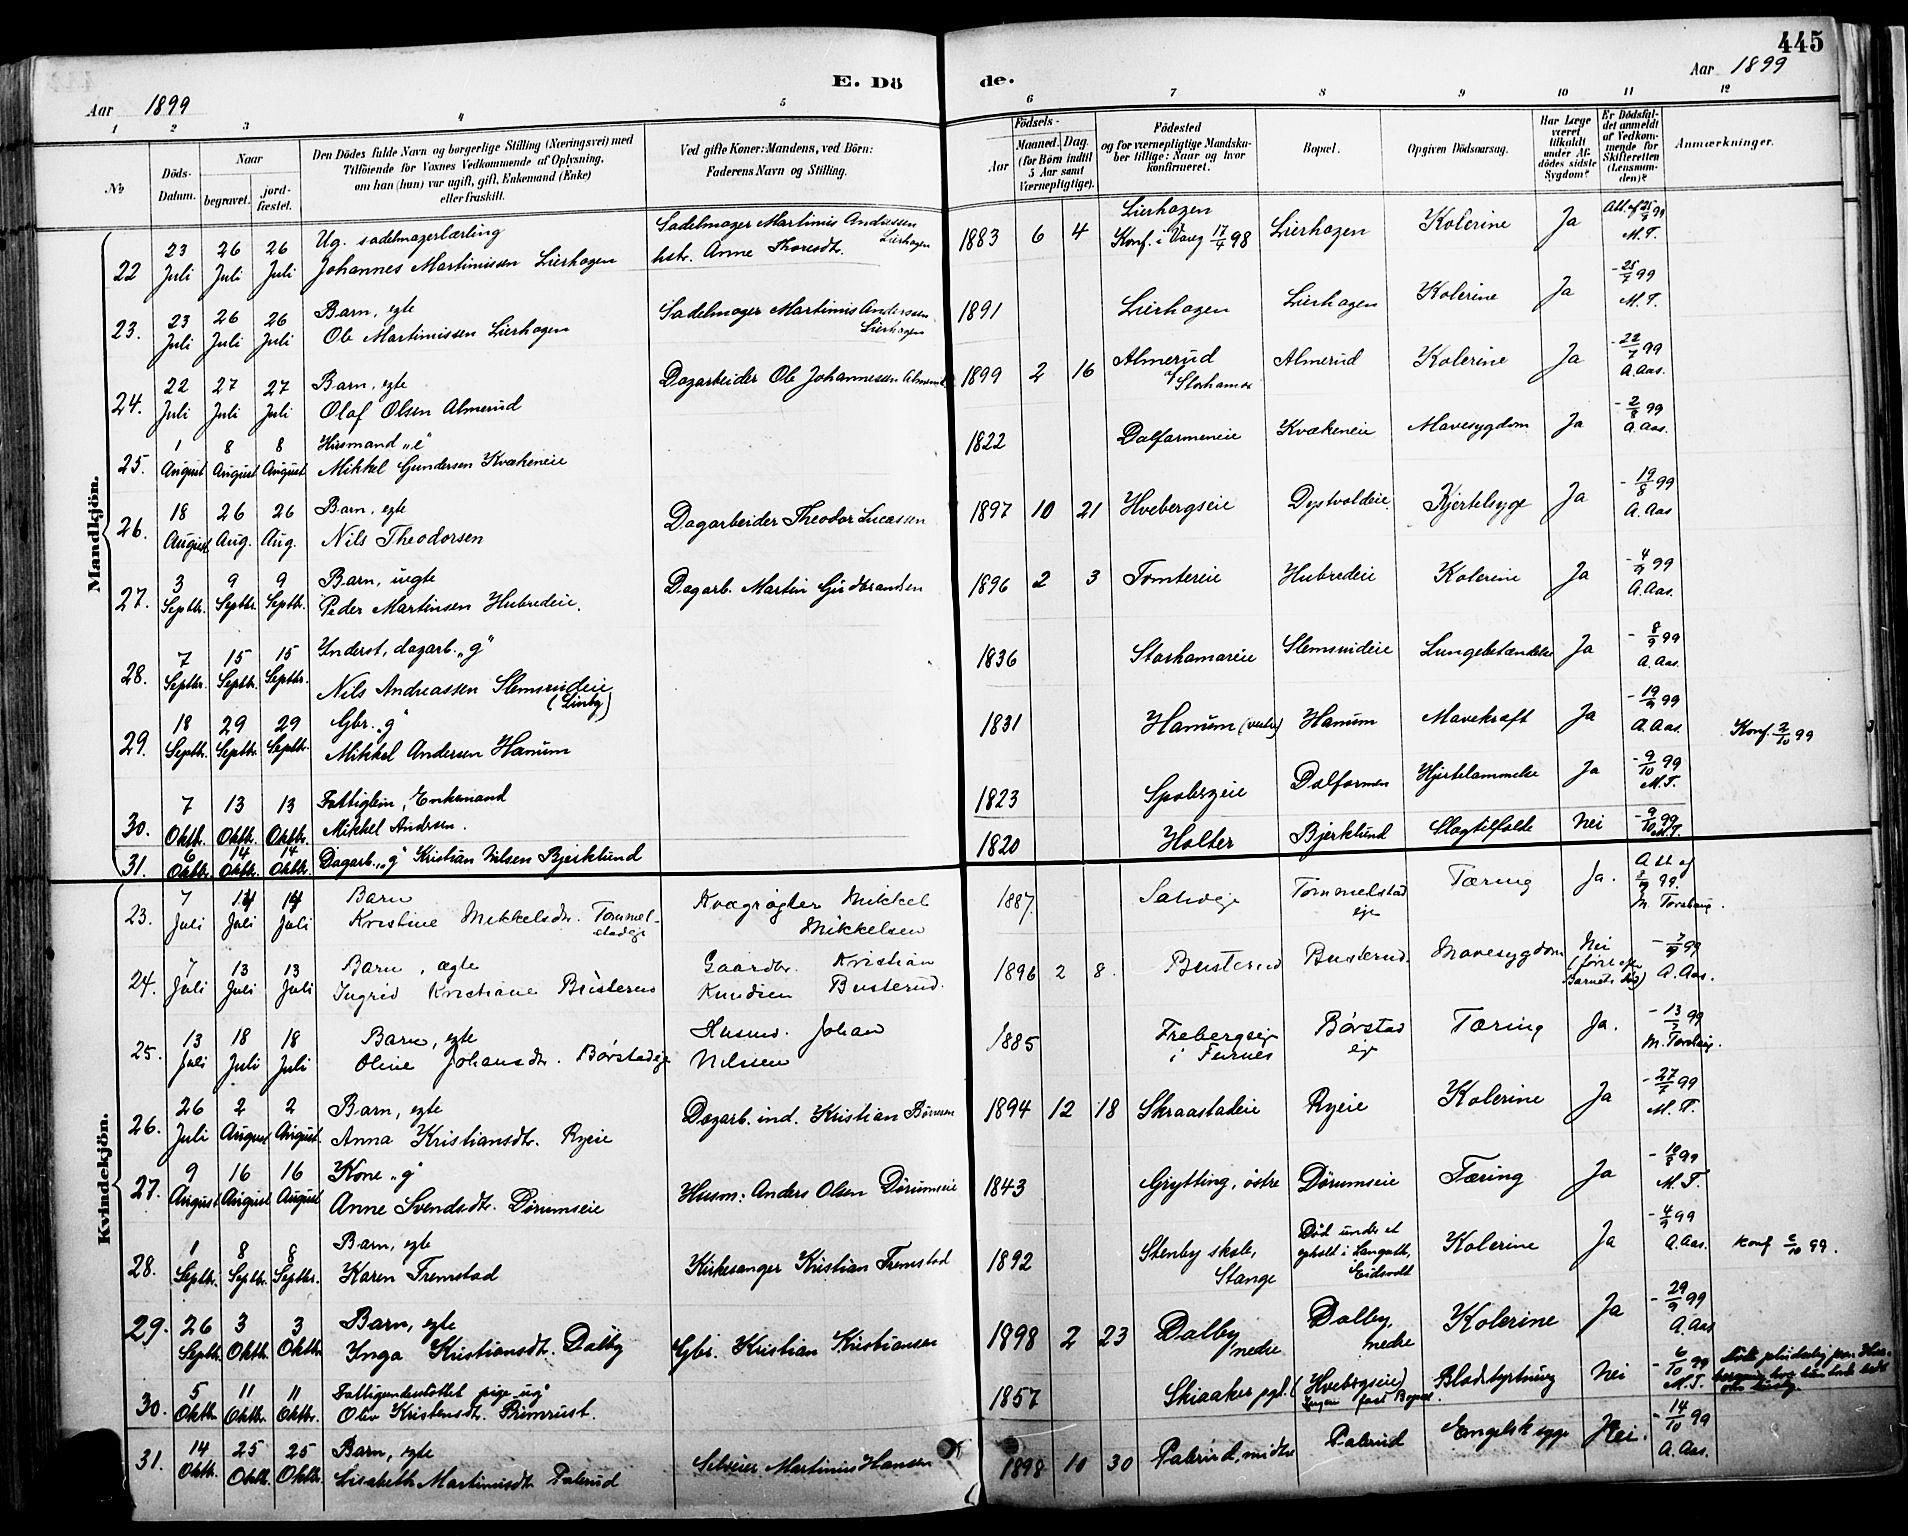 445
E. Dö de.
Aar 1899
Aar 1899
1 2 3 4 5 6 7 8 9 10 11 12
No
Döds-Datum.
Naar
begravet.
jord-fæstet.
Den Dödes fulde Navn og borgerlige Stilling (Næringsvei) med
Tilföiende for Voxnes Vedkommende af Oplysning,
om han (hun) var ugift, gift, Enkemand (Enke)
eller fraskilt.
Ved gifte Koner: Mandens, ved Börn:
Faderens Navn og Stilling.
Födsels-
Aar
Maaned. Dag.
(for Börn indtil
5 Aar samt
Værnepligtige).
Födested
og for værnepligtige Mandska-
ber tillige: Naar og hvor
konfirmeret.
Bopæl.
Opgiven Dödsaarsag.
Har Læge
været
tilkaldt
under Af-
dödes sidste
Sygdom?
Er Dödsfal-
det anmeldt
af Vedkom-
mende for
Skifteretten
(Lensman-
den)?
Anmærkninger.
Mandkjön.
22 23 Juli 26 Juli 26 Juli Ug. sadelmagerlærling
Johannes Martinissen Lierhagen
Sadelmager Martinis Andersen Lierhagen
hstr. Anne Thoresdt.
1883 6 4 Lierhagen
Konf. i Vang 17/4 98 Lierhagen Kolerine Ja Att. af 25/7 99 M.T.
23. 23 Juli 26 Juli 26 Juli Barn, egte
Ole Martinissen Lierhagen
Sadelmager Martinis Anderssen Lierhagen
1891 Lierhagen Lierhagen Kolerine Ja - 25/7 99 M.T.
24. 22 Juli 27 Juli 27 Juli Barn, egte
Olaf Olsen Almerud
Dagarbeider Ole Johannesen Almerud
1899 2 16 Almerud
af Storhamar Almerud Kolerine Ja - 22/7 99 A. Aas.
25. 1 August 8 August 8 August Husmand "e"
Mikkel Gundersen Kvækeneie
1822 Dalfarmeneie Kvækeneie Mavesygdom Ja - 2/8 99 A. Aas.
26. 18 August 26 Aug. 26 Aug. Barn, egte
Nils Theodorsen
Dagarbeider Theodor Lucassen
1897 10 21 Hvebergseie Dystvoldeie Kjertelsyge Ja - 19/8 99 A. Aas
27. 3 Septbr. 9 Septbr. 9 Septbr. Barn, uegte
Peder Martinsen Hubredeie.
Dagarb. Martin Gudbrandsen
1896 2 3 Tomtereie Hubredeie Kolerine Ja - 4/9 99 A. Aas.
28. 7 Septbr. 15 Septbr. 15 Septbr. Inderst, dagarb. "g"
Nils Andreassen Slemsrudeie
(Linby)
1836 Storhamareie Slemsrudeie Lungebetændelse Ja - 8/9 99 A. Aas.
29. 18 Septbr. 29 Septbr. 29 Septbr. Gbr. "g"
Mikkel Andersen Hanum
1831 Hanum (vestre) Hanum Mavekræft Ja - 19/9 99 A. Aas. Konf. 2/10 99
30. 7 Oktb. 13 Oktbr. 13 Oktbr. Fattiglem, Enkemand
Mikkel Andrsen.
1823 Spolergeie Dalfarmen Hjertelammelse Ja - 9/10 99 M.T.
31. 6 Oktbr. 14 Oktbr. 14 Oktbr. Dagarb. "g" Kristian Nilsen Bjerklund
1820 Holter Bjerklund Slagtilfælde Nei - 9/10 99 M.T.
Kvindekjön.
23. 7 Juli 14 Juli 14 Juli Barn
Kristine Mikkelsdtr. Tommelstadeje
Kvægrøgter Mikkel
Mikkelsen
1887. Salveje Tommelstad eje Tæring Ja. Att af 8/7 99. M. Torshaug.
24. 7 Juli 13 Juli 13 Juli Barn, ægte
Ingrid Kristiane Busterud
Gaardbr. Kristian
Knudsen Busterud.
1896 2 8. Busterud Busterud. Mavesygdom Nei (før efter Barnets død) - 7/7 99 A. Aas.
25. 13 Juli 18 Juli 18 Juli Barn, egte
Oline Johansdtr. Børstadeje
Husmd. Johan
Nilssen
1885 Frebergseje
i Furnes Børstad eje Tæring Ja. - 13/7 99 M. Torshaug.
26. 26 Juli 2 August 2 August. Barn, egte
Anna Kristiansdtr. Ryeie
Dagarb. ind. Kristian Bönsen
1894 12 18 Skraastadeie Ryeie Kolerine Ja - 27/7 99 M.T.
27. 9 August 16 August 16 August Kone "g"
Anne Svendsdtr. Dörumseie
Husm: Anders Olsen Dörumseie
1843 Grytting, östre Dörumseie Tæring Ja - 10/8 99 M.T.
28. 1 Septbr. 8 Septbr. 8 Septbr. Barn, egte
Karen Fremstad
Kirkesanger Kristian Fremstad
1892 Stenby skole,
Stange Död under et
ophold i Langseth,
Eidsvold Kolerine Ja - 4/9 99 A. Aas. Konf 2/10 99.
29. 26 Septb. 3 Oktb. 3 Oktb. Barn, egte
Inga Kristiansdt. Dalby
Gbr. Kristian Kristiansen
1898 2 23 Dalby
nedre Dalby,
nedre Kolerine Ja - 29/9 99 A. Aas
30. 5 Oktb. 11 Oktbr. 11 Oktbr. Fattigunderstöttet pige "ug"
Oliv Kristensdt. Primrust.
1857 Skiaaker pgl. (Hvebergseie)
Ingen fast Bopæl. Blodstyrtning Nei - 6/10 99 M.T.
31. 14 Oktb. 25 Oktb. 25 Oktb. Barn, egte
Lisabeth Martinusdt. Palerud
Selveier Martinius Hansen
1898 10 30 Palerud, midtre Palerud Engelsk syge Nei. - 14/10 99 A. Aas.